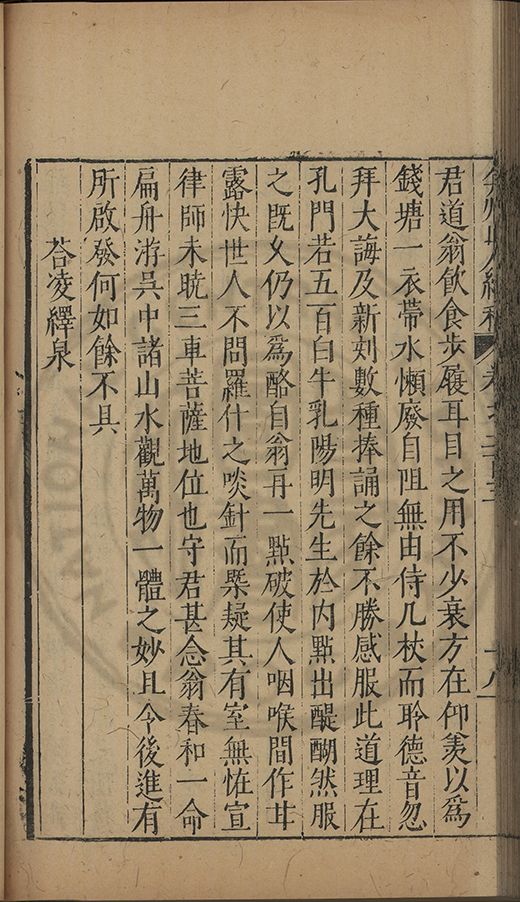 弇州山人續稿 卷之二百三 十八
君道翁飲食步履耳目之用不少衰方在仰羨以爲
錢塘一衣帶水懶廢自阻無由侍几杖而聆德音忽
拜大誨及新刻數種捧誦之餘不勝感服此道理在
孔門若五百白牛乳陽明先生於内點出醍醐然服
之既久仍以爲酪自翁再一點破使人咽喉間作甘
露快世人不問羅什之啖針而槩疑其有室無恠宣
律師未晓三車菩薩地位也守君甚念翁春和一命
扁舟游吳中諸山水觀萬物一體之妙且今後進有
所啟發何如餘不具
荅凌繹泉